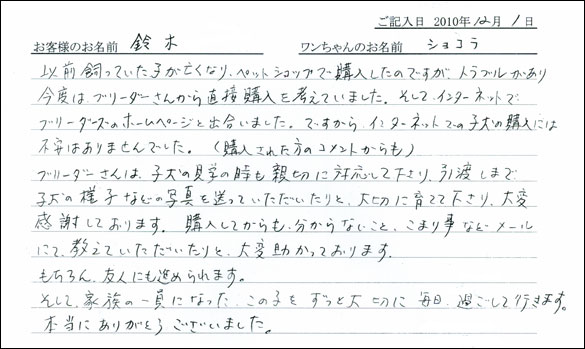 ご記入日 2010年12月 1日
お客様のお名前 鈴木 ワンちゃんのお名前 ショコラ
以前飼っていた子が亡くなり、ペットショップで購入したのですが、トラブルがあり
今度は、ブリーダーさんから直接購入を考えていました。そして、インターネットで
ブリーダーズのホームページと出合いました。ですから、インターネットでの子犬の購入には
不安はありませんでした。(購入された方のコメントからも)
ブリーダーさんは、子犬の見学の時も親切に対応して下さり、引渡しまで
子犬の様子などの写真を送っていただいたりと、大切に育てて下さり、大変
感謝しております。購入してからも、分からないこと、こまり事などメール
にて、教えていただいたりと、大変助かっております。
もちろん、友人にも進められます。
そして、家族の一員になった、この子をずっと大切に毎日、過ごして行きます。
本当にありがとうございいました。